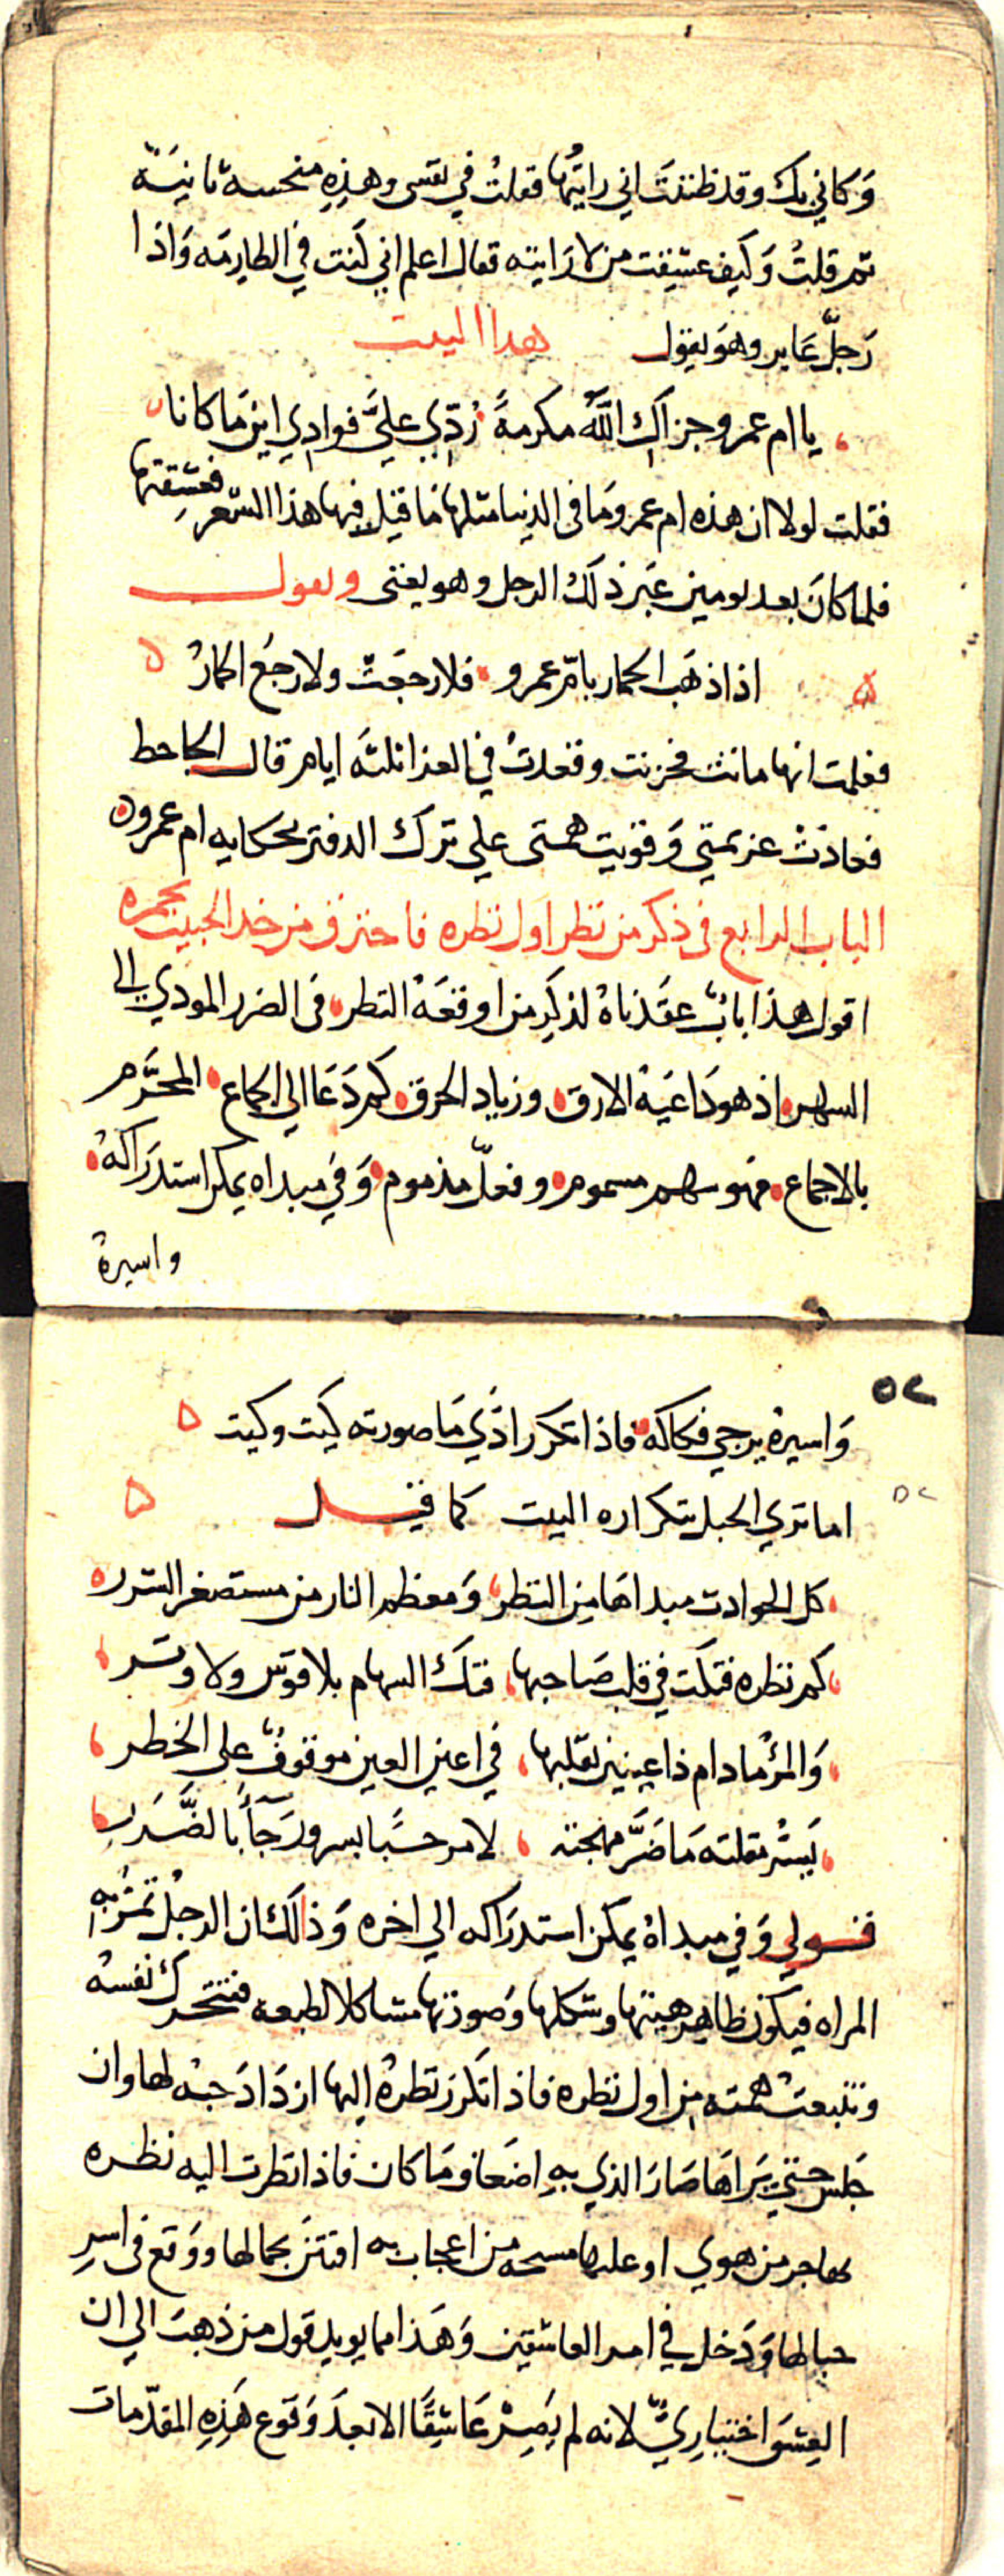 وكاني بك وقد ظننت اني رايتها فقلت في نفسي وهذه منحسة ثانية
ثم قلت وكيف عشقت من لا رايته فقال اعلم اني كنت في الطارمه واذا
رجل عابر وهو يقول هذا البيت
يا ام عمرو جزاك الله مكرمة ردي علي فوادي اين ما كانا
فقلت لولا ان هذه ام عمرو ما في الدنيا مثلها ما قيل فيها هذا الشعر فعشقتها
فلما كان بعد يومين عبر ذلك الرجل وهو يغني ويقول
اذا ذهب الحمار بام عمرو فلا رجعت ولا رجع الحمار
فعلمت انها ماتت فحزنت وقعدت في العزا ثلثه ايام قال الجاحظ
فعادت عزيمتي وقويت همتي علي ترك الدفتر بحكايه ام عمرو
الباب الرابع في ذكر من نظر اول نظره فاحترق من خد الحبيب بجمره
اقول هذا باب عقدناه لذكر من اوقعه النظر في الضرر المودي الي
السهر اذ هو داعية الارق وزياد الحرق كم دعا الي الجماع المحرم
بالاجماع فهو سهم مسموم وفعل مذموم وفي مبداه يمكن استدراكه
واسيره
٥٢
واسيره يرجي فكاكه فاذا تكرر اذي ما صورته كيت وكيت
٥٢
اما تري الحبل بتكراره البيت كما قيل
كل الحوادث مبداها من النظر ومعظم النار من مستصغر الشرر
كم نظره فتكت في قلب صاحبها فتك السهام بلا قوس ولا وتر
والمرؤ ما دام ذا عينين يقلبها في اعين العين موقوف علي الخطر
يسر مقلته ما ضر مهجته لا مرحبا بسرور جآ بالضرر
قولي وفي مبداه يمكن استدراكه الي اخره وذلك ان الرجل تمر به
المراه فيكون ظاهر هيتها وشكلها وصورتها مشاكلا لطبعه فتتحرك نفسه
وتنبعث همته من اول نظره فاذا تكرر نظره اليها ازداد حبه لها وان
جلس حتي يراها صار الذي به اضعاف ما كان فاذا نظرت اليه نظره
من هوي او عليها مسحه من اعجاب به افتتن بجمالها ووقع في اسر
حبالها ودخل في امر العاشقين وهذا مما يويد قول من ذهب الي ان
العشق اختياري لانه لم يصر عاشقا الا بعد وقوع هذه المقدمات